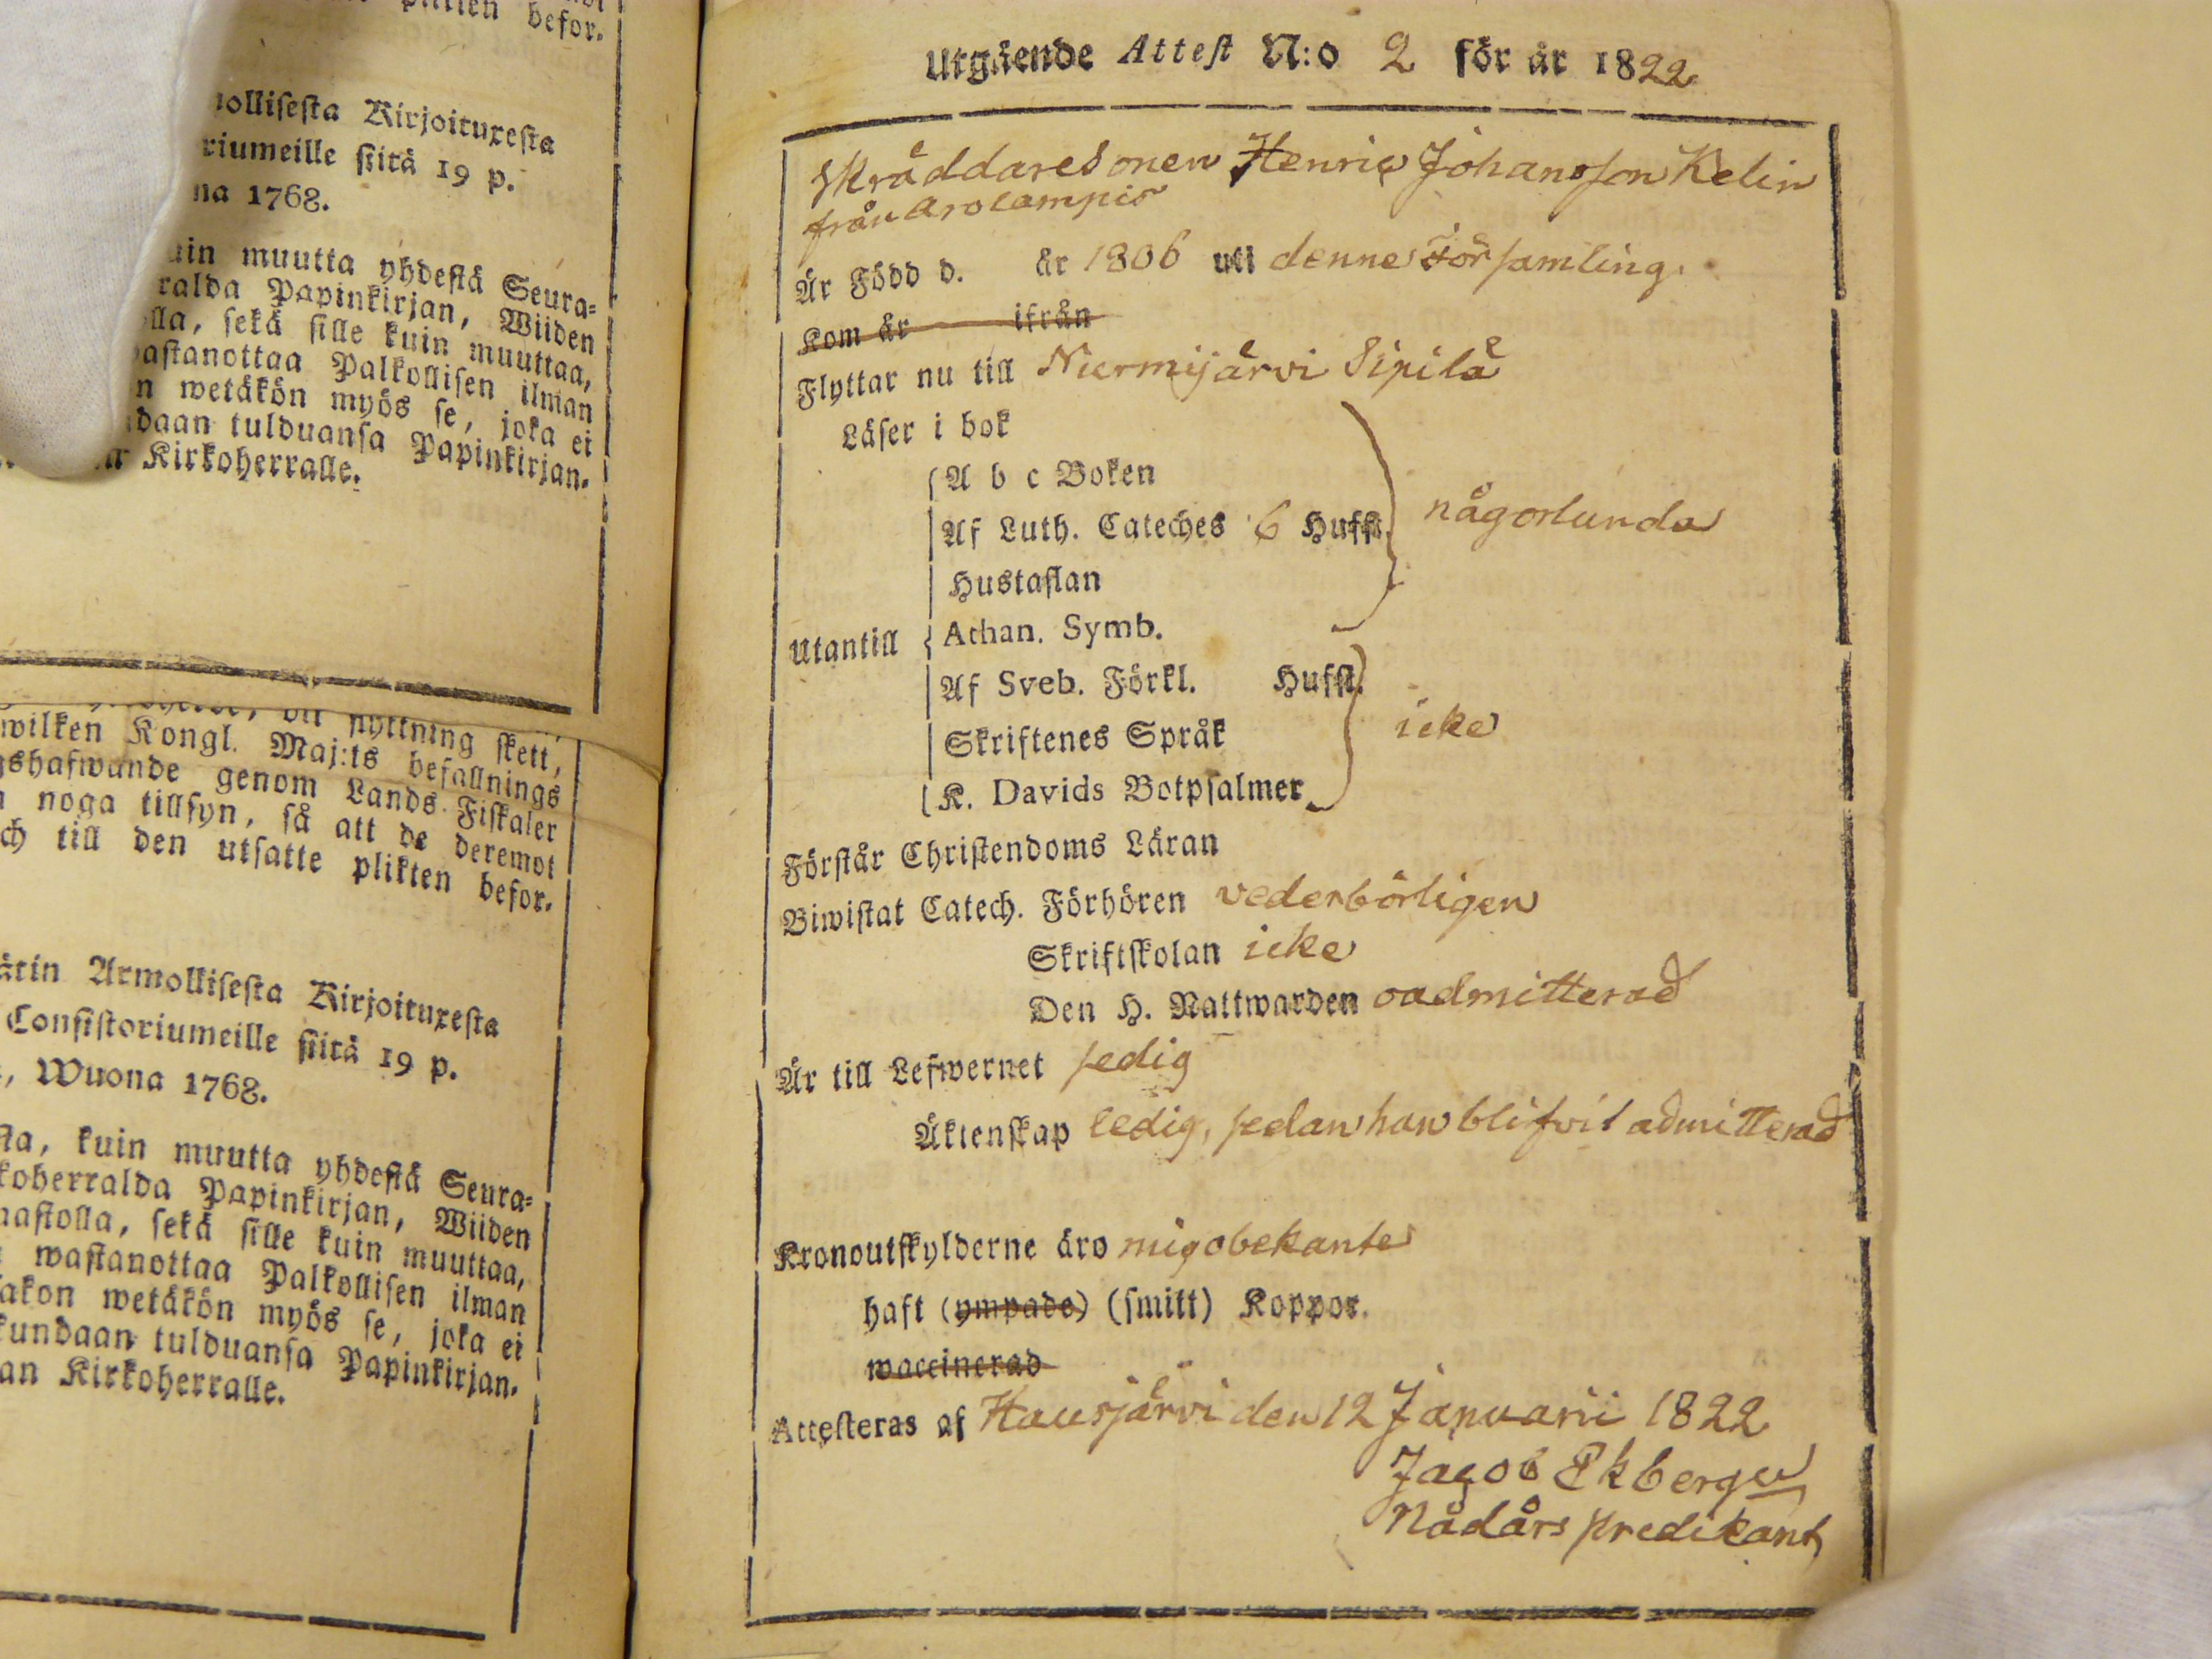 plikten befor.
mollisesta Kirjoituxesta
riumeille siitä 19 p.
na 1768.
uin muutta yhdestä Seura-
ralda Papinkirjan, Wiiden
lla, sekä sille kuin muuttaa,
astanottaa Palkollisen ilman
n wetäkön myös se, joka ei
daan tulduansa Papinkirjan.
Kirkoherralle.
flyttning skett,
wilken Kongl. Maj:ts befallnings
gshafwande genom Lands Fiskaler
noga tillsyn, så att de deremot
ch till den utsatte plikten befor.
ätin Armollisesta Kirjoituxesta
Consistoriumeille siitä 19 p.
, Wuona 1768.
sta, kuin muutta yhdestä Seura-
koherralda Papinkirjan, Wiiden
nastolla, sekä sille kuin muuttaa,
wastanottaa Palkollisen ilman
akon wetäkön myös se, joka ei
kundaan tulduansa Papinkirjan.
an Kirkoherralle.
Utgående Attest N:o 2 för år 1822
Skräddaresonen Henric Johansson Kelin
från Arolampis
Är Född d. år 1806 uti denne Församling.
Kom år ifrån
Flyttar nu till Nurmijärvi Sipilä
Läser i bok
A b c Boken
Af Luth. Cateches 6 Hufst. någorlunda
Hustaflan
Utantill Athan. Symb.
Af Sveb. Förkl. Hufst.
Skriftenes Språk icke
K. Davids Botpsalmer
Förstår Christendoms Läran
Biwistat Catech. Förhören vederbörligen
Skriftskolan icke
Den H. Nattwarden oadmitterad
Är till Lefwernet sedig
Äktenskap ledig, sedan han blifvit admitterad
Kronoutskylderne äro mig obekante
haft (ympade) (smitt) Koppor.
waccinerad
Attesteras af Hausjärvi den 12 Januarii 1822
Jacob Ekberg
Nådårs predikant